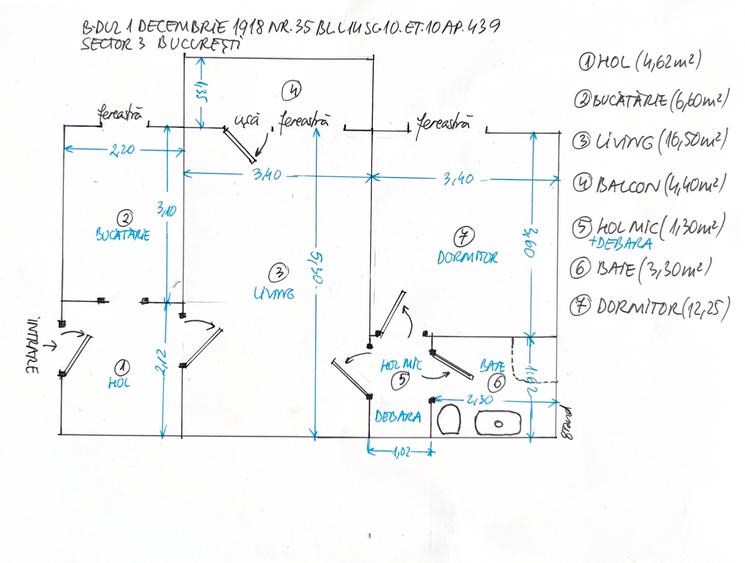 B-DUL 1 DECEMBRIE 1918 NR.35 BL.L14 SC.10.ET.10 AP.439
SECTOR 3 BUCUREȘTI
① HOL (4,62m²)
② BUCĂTĂRIE (6,60m²)
③ LIVING (16,50m²)
④ BALCON (4,40m²)
⑤ HOL MIC (1,30m²)
+DEBARA
⑥ BAIE (3,30m²)
⑦ DORMITOR (12,25)
④
1,35
fereastră
ușă
fereastră
fereastră
2,20
3,40
3,40
3,10
② BUCĂTĂRIE
③ LIVING
5,30
⑦ DORMITOR
3,60
INTRARE
① HOL
2,12
HOL MIC
⑤
BAIE
⑥
1,62
2,30
DEBARA
1,02